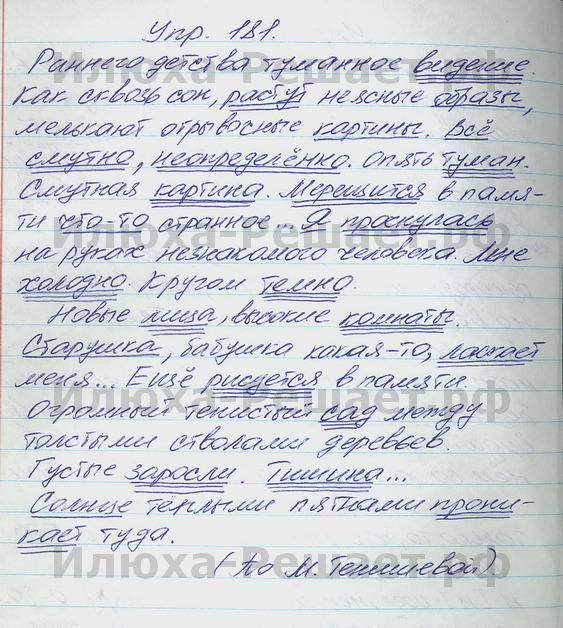 Упр. 181.
Раннего детства туманное видение.
Как сквозь сон, растут неясные образы,
мелькают отрывочные картины. Всё
смутно, неопределённо. Опять туман.
Смутная картина. Мерещится в памя-
ти что-то странное... Я проснулась
на руках незнакомого человека. Мне
холодно. Кругом темно.
Новые лица, высокие комнаты.
Старушка, бабушка какая-то, ласкает
меня... Ещё рисуется в памяти.
Огромный тенистый сад между
толстыми стволами деревьев.
Густые заросли. Тишина...
Солнце тёплыми пятнами прони-
кает туда.
(По М. Тенишевой).
Илюха-Решает.рф
Илюха-Решает.рф
Илюха-Решает.рф
Илюха-Решает.рф